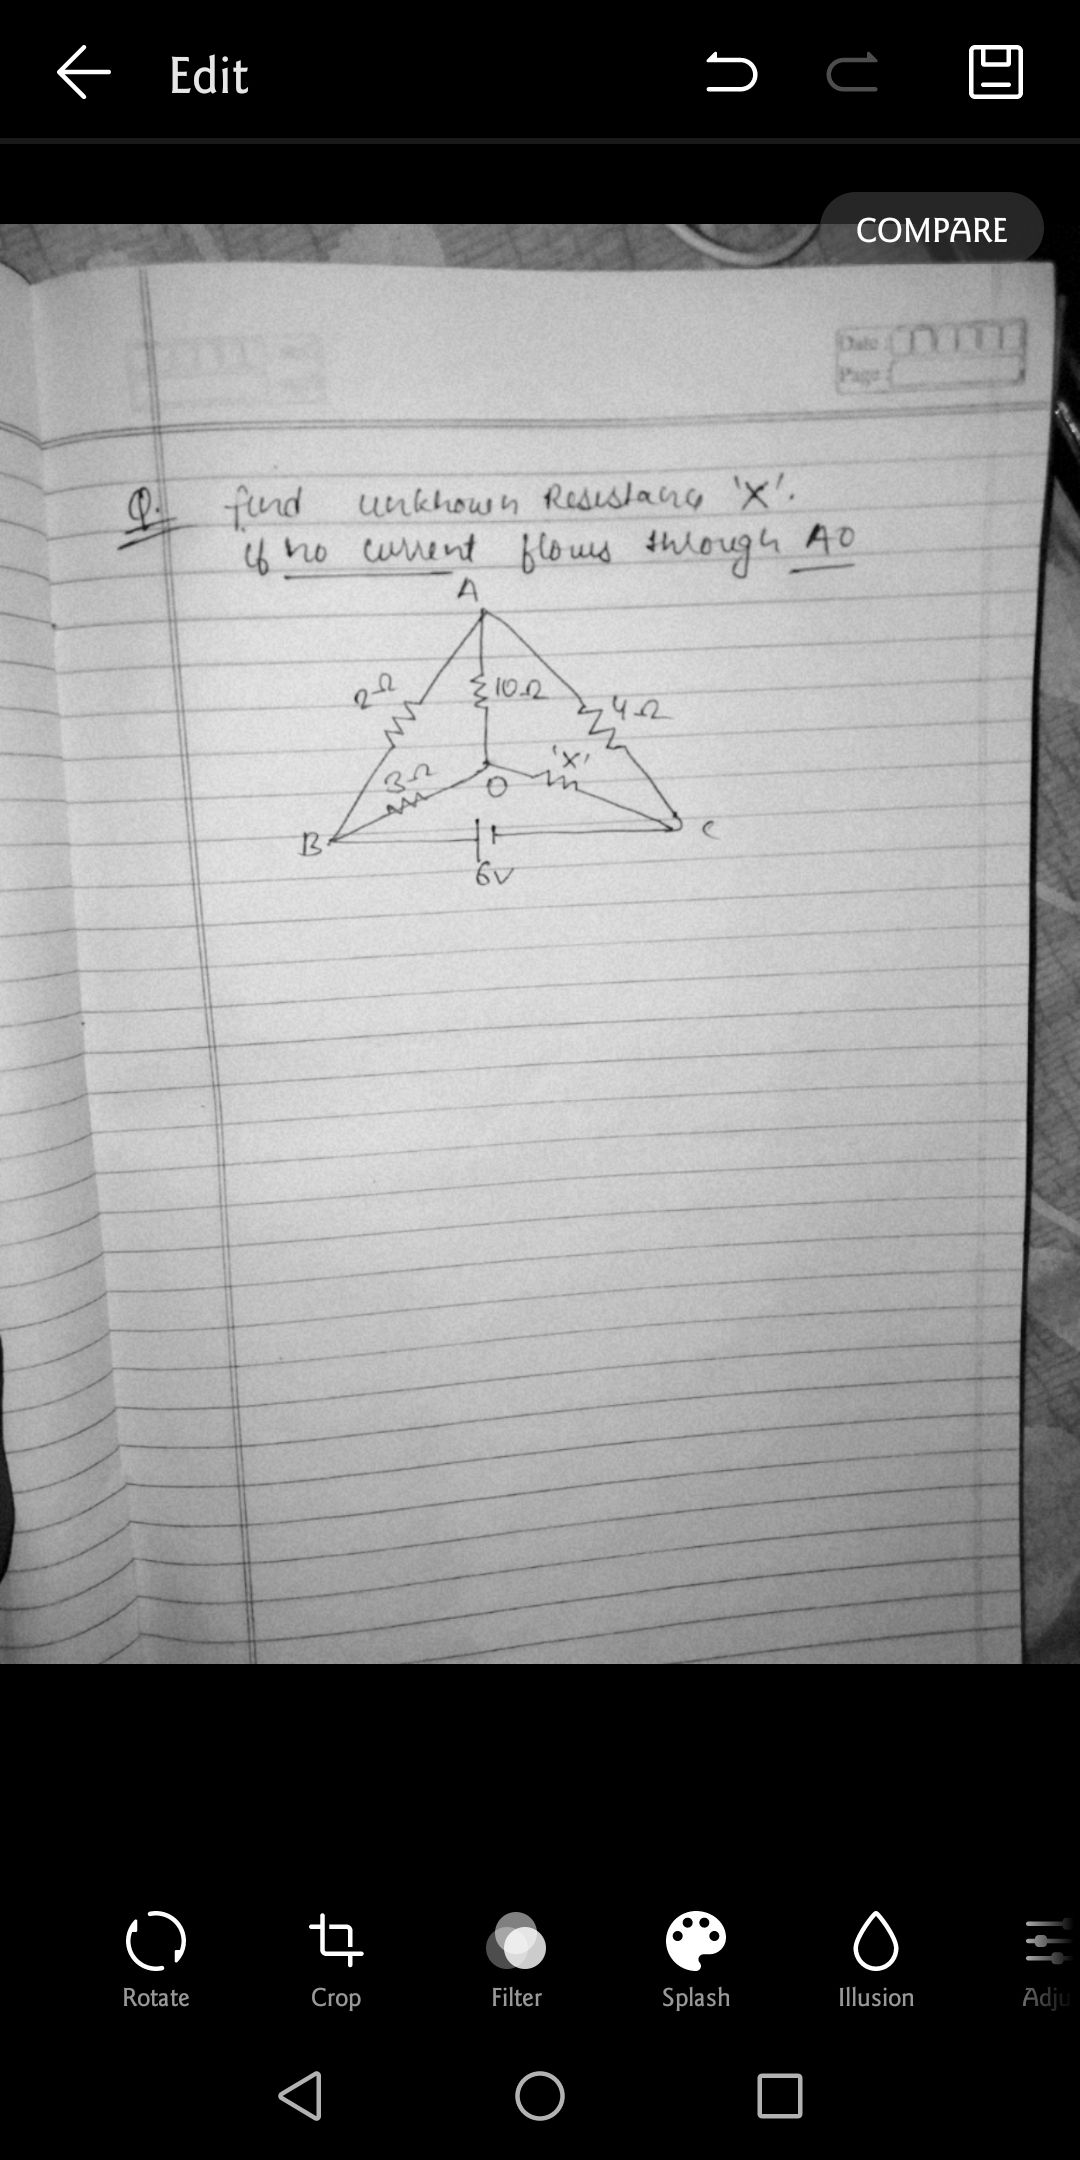 Edit
COMPARE
Date :
Page :
Q. find unknown Resistance 'X'.
if no current flows through AO
A
2Ω
10Ω
4Ω
'X'
3Ω
O
B
C
6V
Rotate
Crop
Filter
Splash
Illusion
Adju